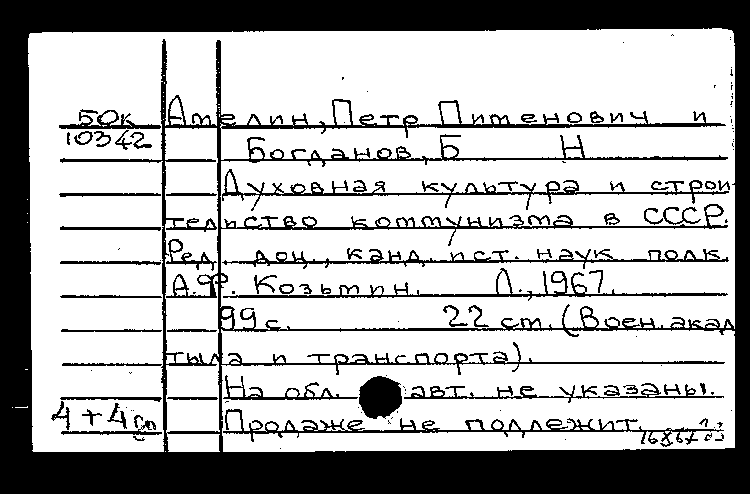 50к Амелин, Петр Пименович и
10342 Богданов, Б Н
Духовная культура и строи
тельство коммунизма в СССР.
Ред. доц., канд. ист. наук полк.
А.Ф. Козьмин. Л., 1967.
99 с. 22 см. (Воен. акад
тыла и транспорта).
На обл. авт. не указаны.
4+4
Продаже не подлежит.